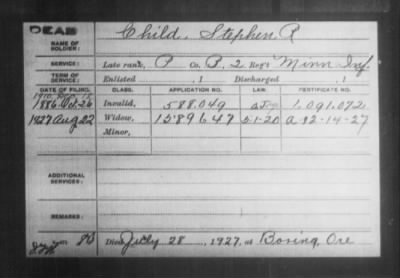 DEAD
NAME OF SOLDIER: Child, Stephen R
SERVICE: Late rank, P Co. B, 2 Reg't Minn Inf.
TERM OF SERVICE: Enlisted , 1 Discharged , 1
DATE OF FILING. CLASS. APPLICATION NO. LAW. CERTIFICATE NO.
1886 Oct. 26 Invalid, 588.049 1,091,072
1927 Aug 22 Widow, 1589647 5-1-20 a 12-14-27
Minor,
ADDITIONAL SERVICES:
REMARKS:
Died July 28, 1927, at Boring, Ore